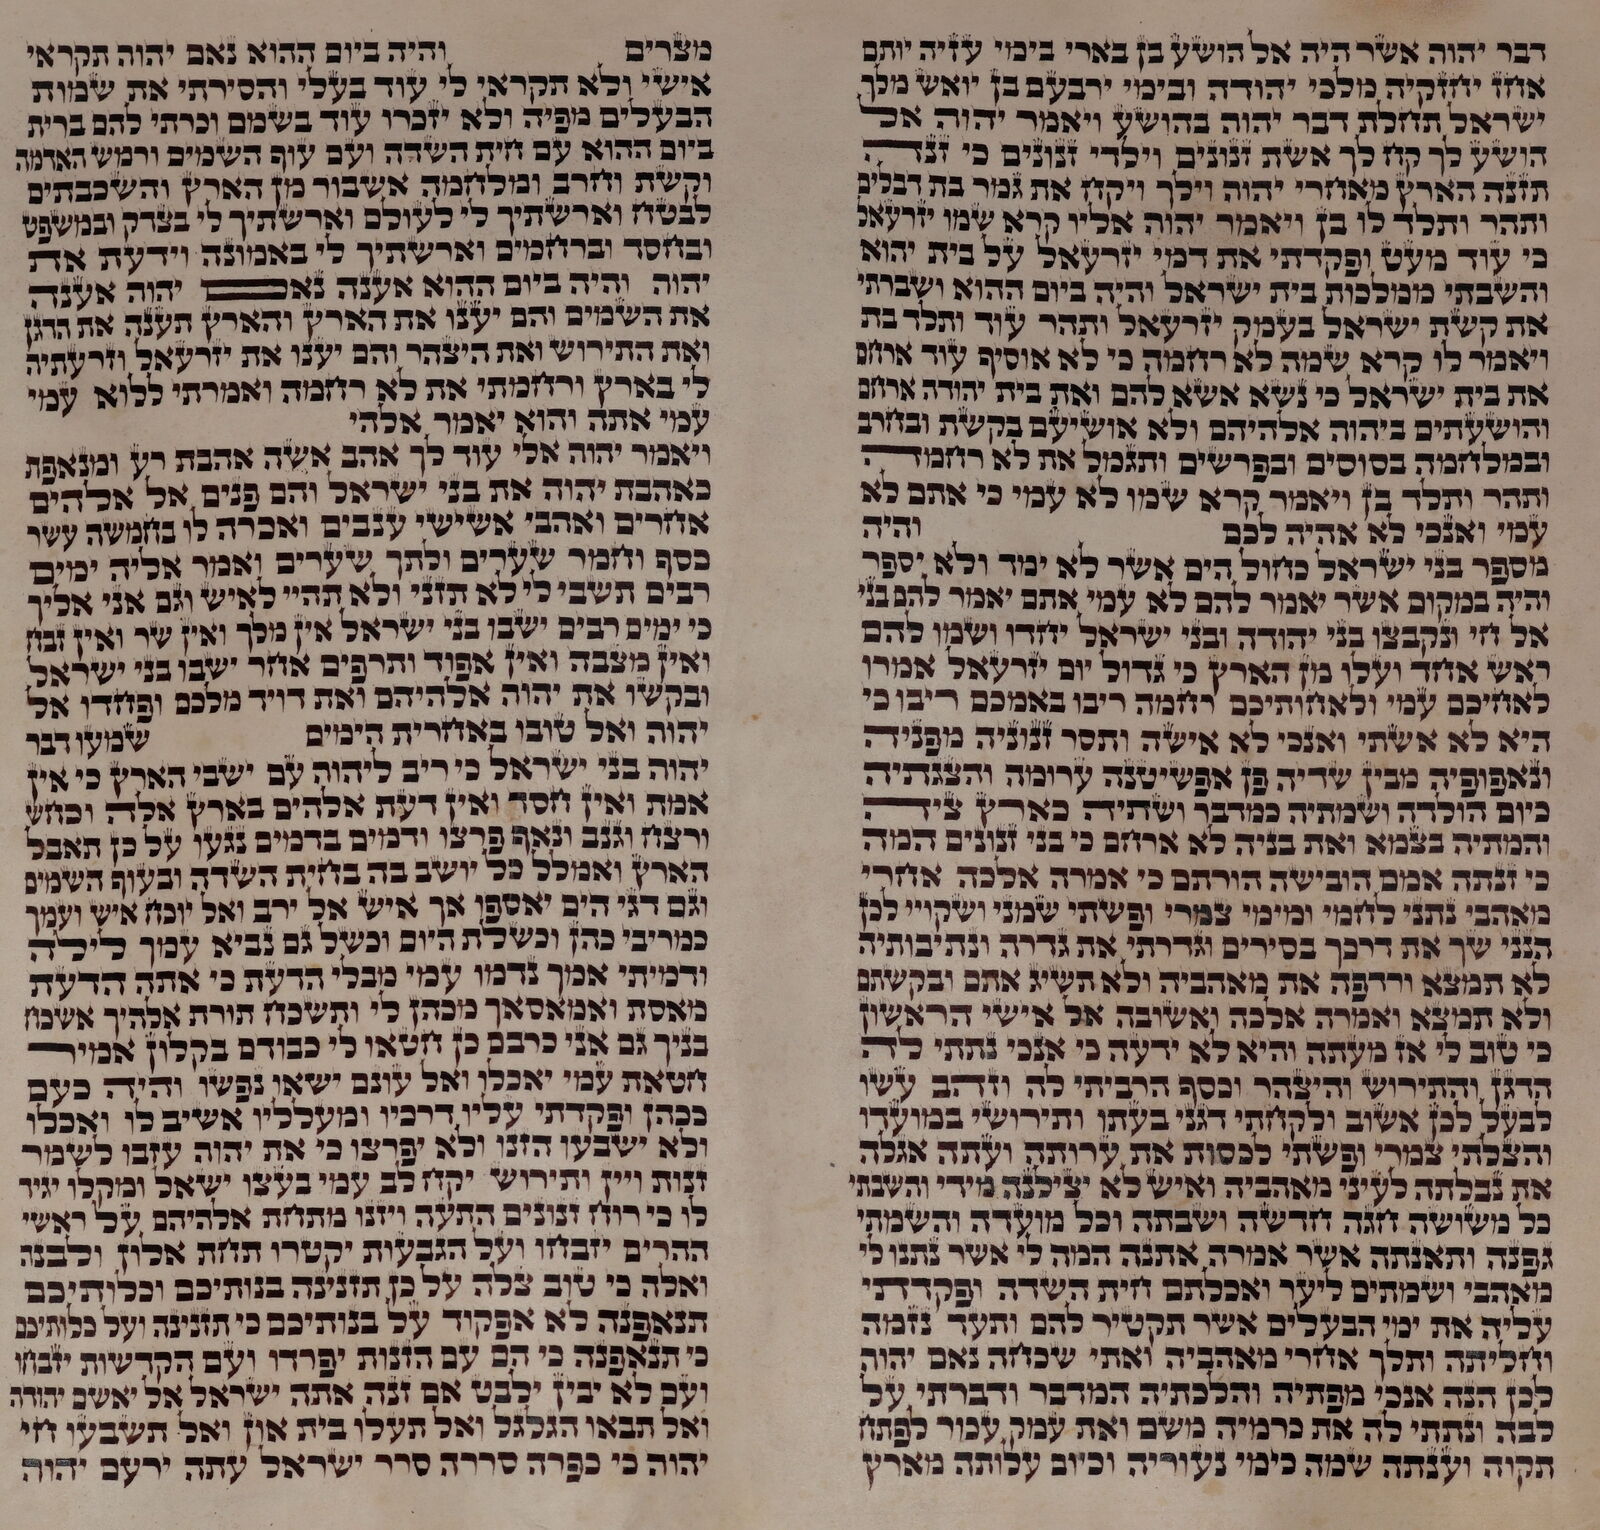 דבר יהוה אשר היה אל הושע בן בארי בימי עזיה יותם
אחז יחזקיה מלכי יהודה ובימי ירבעם בן יואש מלך
ישראל תחלת דבר יהוה בהושע ויאמר יהוה אל
הושע לך קח לך אשת זנונים וילדי זנונים כי זנה
תזנה הארץ מאחרי יהוה וילך ויקח את גמר בת דבלים
ותהר ותלד לו בן ויאמר יהוה אליו קרא שמו יזרעאל
כי עוד מעט ופקדתי את דמי יזרעאל על בית יהוא
והשבתי ממלכות בית ישראל והיה ביום ההוא ושברתי
את קשת ישראל בעמק יזרעאל ותהר עוד ותלד בת
ויאמר לו קרא שמה לא רחמה כי לא אוסיף עוד ארחם
את בית ישראל כי נשא אשא להם ואת בית יהודה ארחם
והושעתים ביהוה אלהיהם ולא אושיעם בקשת ובחרב
ובמלחמה בסוסים ובפרשים ותגמל את לא רחמה
ותהר ותלד בן ויאמר קרא שמו לא עמי כי אתם לא
עמי ואנכי לא אהיה לכם והיה
מספר בני ישראל כחול הים אשר לא ימד ולא יספר
והיה במקום אשר יאמר להם לא עמי אתם יאמר להם בני
אל חי ונקבצו בני יהודה ובני ישראל יחדו ושמו להם
ראש אחד ועלו מן הארץ כי גדול יום יזרעאל אמרו
לאחיכם עמי ולאחותיכם רחמה ריבו באמכם ריבו כי
היא לא אשתי ואנכי לא אישה ותסר זנוניה מפניה
ונאפופיה מבין שדיה פן אפשיטנה ערומה והצגתיה
כיום הולדה ושמתיה כמדבר ושתיה כארץ ציה
והמתיה בצמא ואת בניה לא ארחם כי בני זנונים המה
כי זנתה אמם הובישה הורתם כי אמרה אלכה אחרי
מאהבי נתני לחמי ומימי צמרי ופשתי שמני ושקויי לכן
הנני שך את דרכך בסירים וגדרתי את גדרה ונתיבותיה
לא תמצא ורדפה את מאהביה ולא תשיג אתם ובקשתם
ולא תמצא ואמרה אלכה ואשובה אל אישי הראשון
כי טוב לי אז מעתה והיא לא ידעה כי אנכי נתתי לה
הדגן והתירוש והיצהר וכסף הרביתי לה וזהב עשו
לבעל לכן אשוב ולקחתי דגני בעתו ותירושי במועדו
והצלתי צמרי ופשתי לכסות את ערותה ועתה אגלה
את נבלתה לעיני מאהביה ואיש לא יצילנה מידי והשבתי
כל משושה חגה חדשה ושבתה וכל מועדה והשמתי
גפנה ותאנתה אשר אמרה אתנה המה לי אשר נתנו לי
מאהבי ושמתים ליער ואכלתם חית השדה ופקדתי
עליה את ימי הבעלים אשר תקטיר להם ותעד נזמה
וחליתה ותלך אחרי מאהביה ואתי שכחה נאם יהוה
לכן הנה אנכי מפתיה והלכתיה המדבר ודברתי על
לבה ונתתי לה את כרמיה משם ואת עמק עכור לפתח
תקוה וענתה שמה כימי נעוריה וכיום עלותה מארץ
מצרים והיה ביום ההוא נאם יהוה תקראי
אישי ולא תקראי לי עוד בעלי והסירתי את שמות
הבעלים מפיה ולא יזכרו עוד בשמם וכרתי להם ברית
ביום ההוא עם חית השדה ועם עוף השמים ורמש האדמה
וקשת וחרב ומלחמה אשבור מן הארץ והשכבתים
לבטח וארשתיך לי לעולם וארשתיך לי בצדק ובמשפט
ובחסד וברחמים וארשתיך לי באמונה וידעת את
יהוה והיה ביום ההוא אענה נאם יהוה אענה
את השמים והם יענו את הארץ והארץ תענה את הדגן
ואת התירוש ואת היצהר והם יענו את יזרעאל וזרעתיה
לי בארץ ורחמתי את לא רחמה ואמרתי ללוא עמי
עמי אתה והוא יאמר אלהי
ויאמר יהוה אלי עוד לך אהב אשה אהבת רע ומנאפת
כאהבת יהוה את בני ישראל והם פנים אל אלהים
אחרים ואהבי אשישי ענבים ואכרה לו בחמשה עשר
כסף וחמר שערים ולתך שערים ואמר אליה ימים
רבים תשבי לי לא תזני ולא תהיי לאיש וגם אני אליך
כי ימים רבים ישבו בני ישראל אין מלך ואין שר ואין זבח
ואין מצבה ואין אפוד ותרפים אחר ישבו בני ישראל
ובקשו את יהוה אלהיהם ואת דויד מלכם ופחדו אל
יהוה ואל טובו באחרית הימים שמעו דבר
יהוה בני ישראל כי ריב ליהוה עם ישבי הארץ כי אין
אמת ואין חסד ואין דעת אלהים בארץ אלה וכחש
ורצח וגנב ונאף פרצו ודמים בדמים נגעו על כן תאבל
הארץ ואמלל כל יושב בה בחית השדה ובעוף השמים
וגם דגי הים יאספו אך איש אל ירב ואל יוכח איש ועמך
כמריבי כהן וכשלת היום וכשל גם נביא עמך לילה
ודמיתי אמך נדמו עמי מבלי הדעת כי אתה הדעת
מאסת ואמאסאך מכהן לי ותשכח תורת אלהיך אשכח
בניך גם אני כרבם כן חטאו לי כבודם בקלון אמיר
חטאת עמי יאכלו ואל עונם ישאו נפשו והיה כעם
ככהן ופקדתי עליו דרכיו ומעלליו אשיב לו ואכלו
ולא ישבעו הזנו ולא יפרצו כי את יהוה עזבו לשמר
זנות ויין ותירוש יקח לב עמי בעצו ישאל ומקלו יגיד
לו כי רוח זנונים התעה ויזנו מתחת אלהיהם על ראשי
ההרים יזבחו ועל הגבעות יקטרו תחת אלון ולבנה
ואלה כי טוב צלה על כן תזנינה בנותיכם וכלותיכם
תנאפנה לא אפקוד על בנותיכם כי תזנינה ועל כלותיכם
כי תנאפנה כי הם עם הזנות יפרדו ועם הקדשות יזבחו
ועם לא יבין ילבט אם זנה אתה ישראל אל יאשם יהודה
ואל תבאו הגלגל ואל תעלו בית און ואל תשבעו חי
יהוה כי כפרה סררה סרר ישראל עתה ירעם יהוה